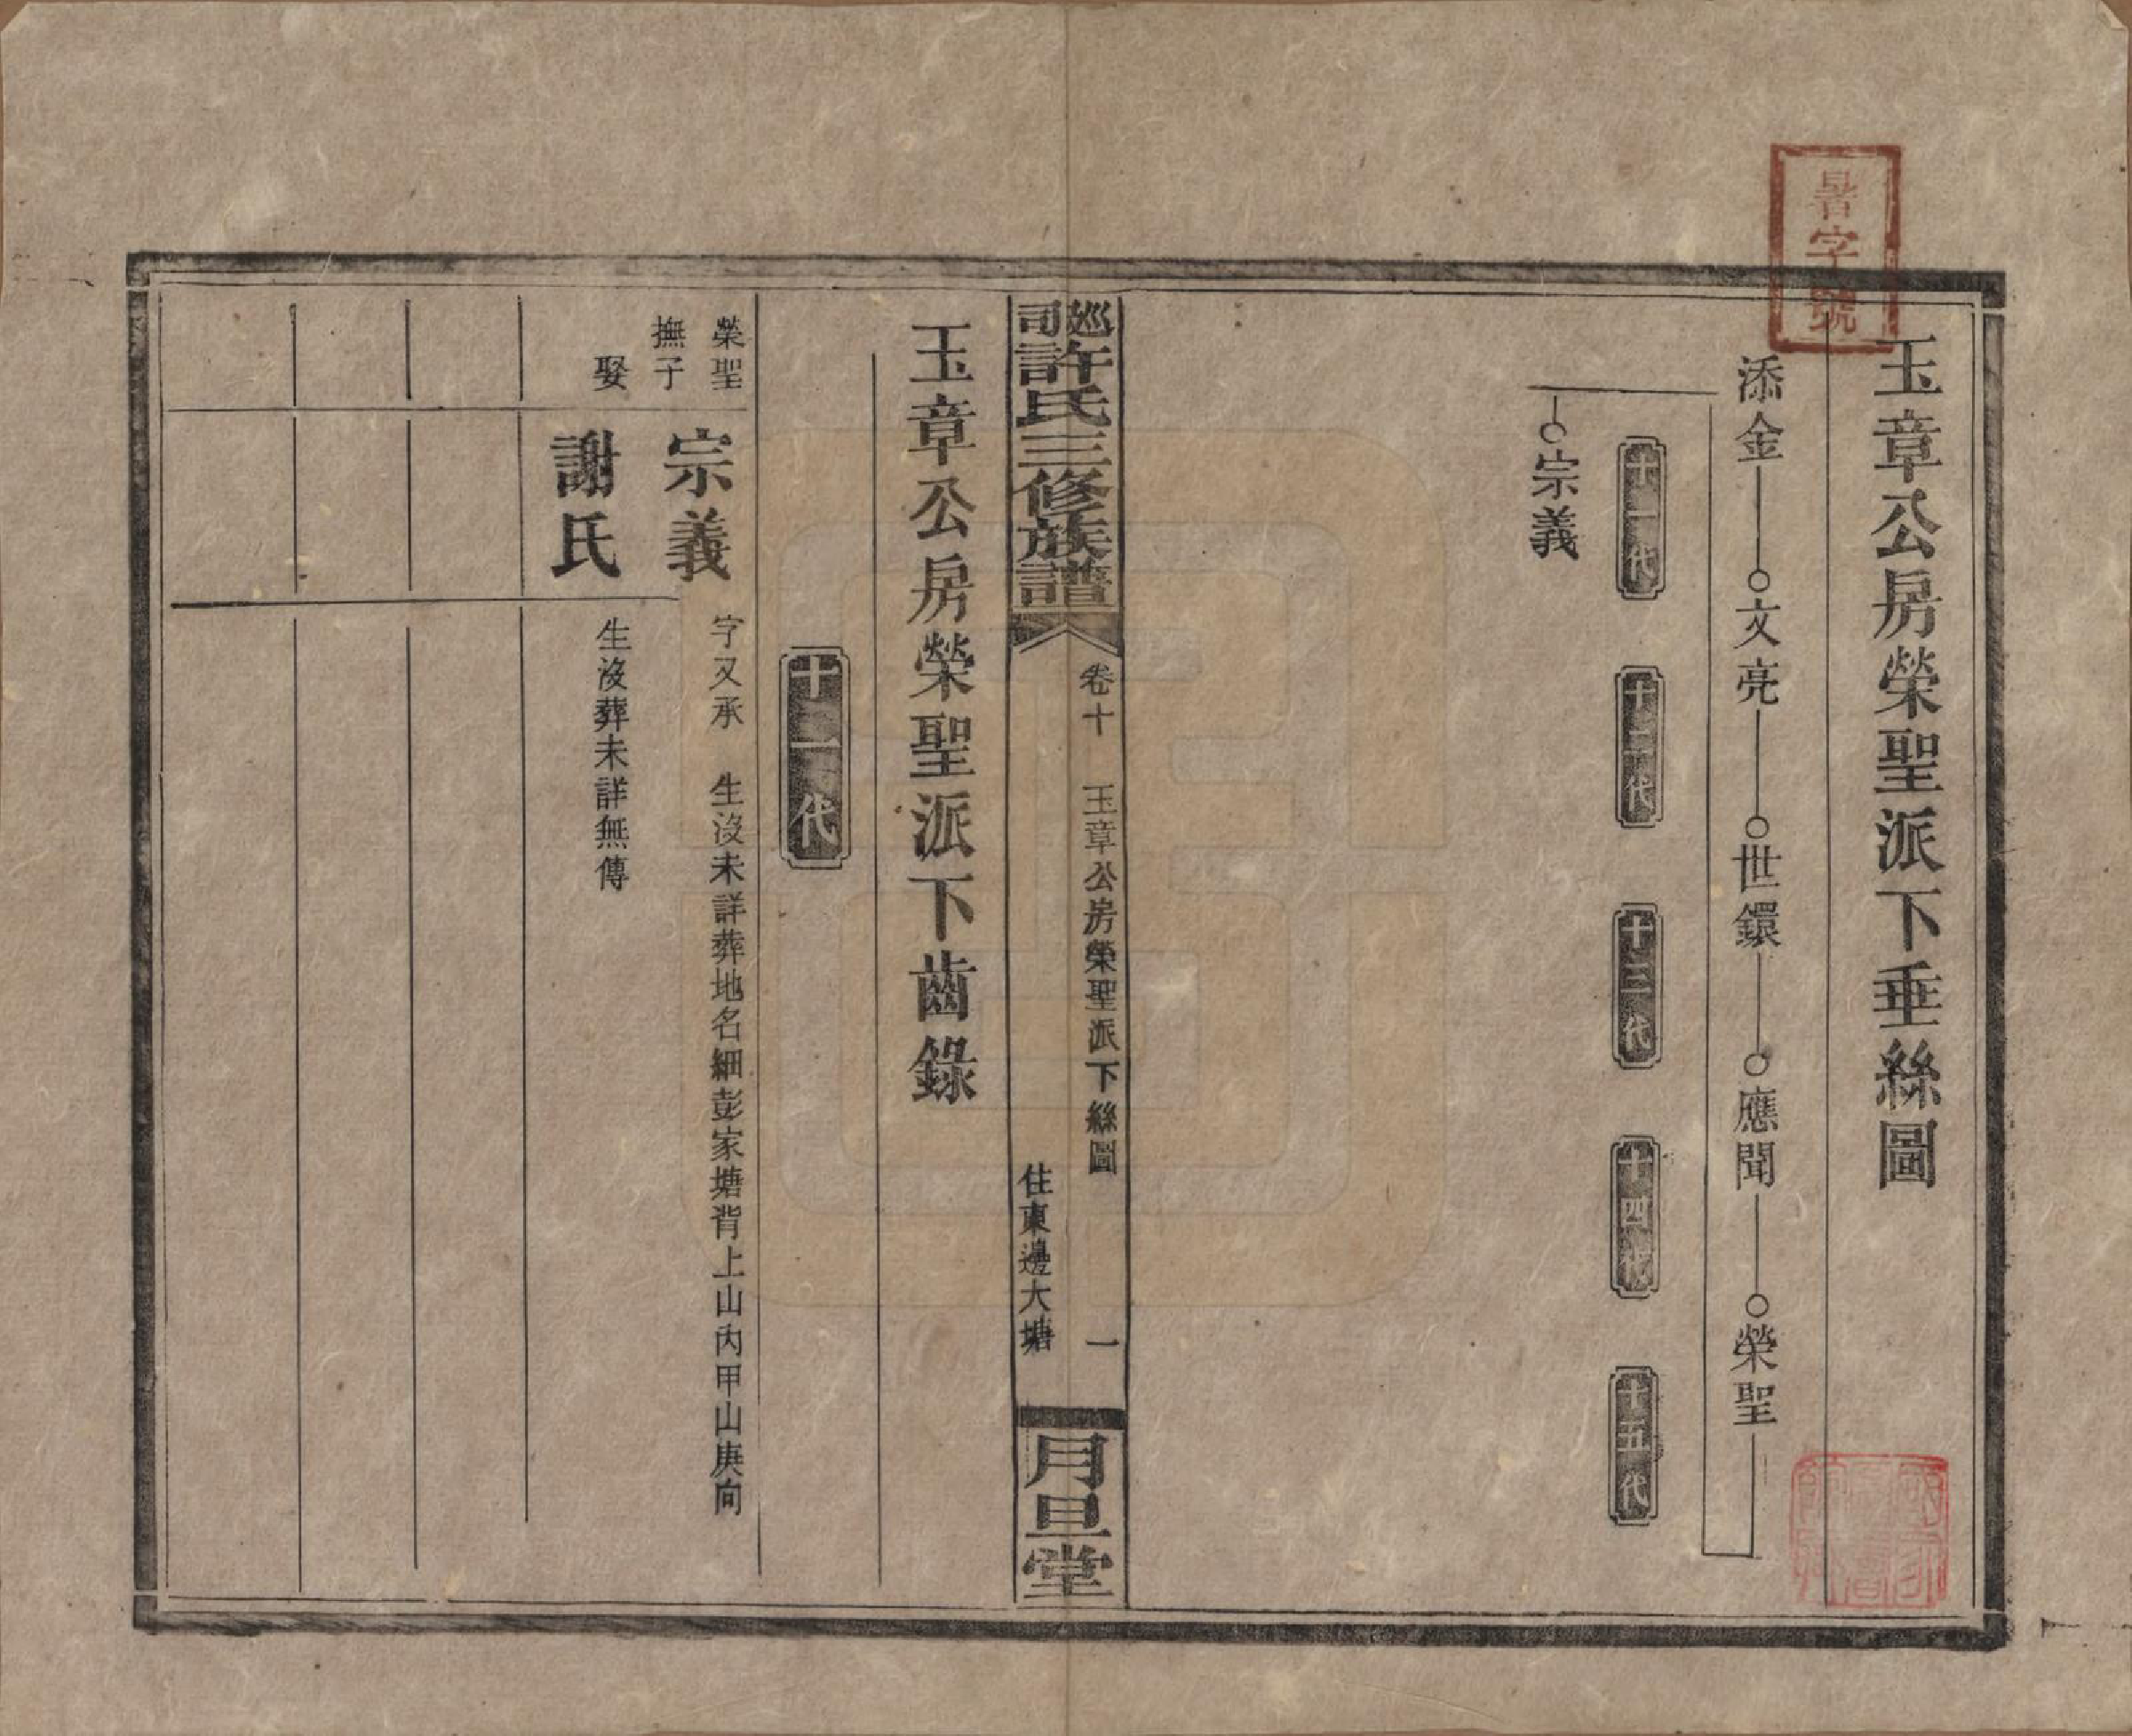 字號
玉章公房榮聖派下垂絲圖
添金 文亮 世鐶 應聞 榮聖
十一代 十二代 十三代 十四代 十五代
宗義
巡司許氏三修族譜
卷十 玉章公房榮聖派下絲圖 一
住東邊大塘
月旦堂
玉章公房榮聖派下齒錄
十一代
榮聖
撫子 宗義 字又承 生沒未詳葬地名細彭家塘背上山內甲山庚向
娶 謝氏 生沒葬未詳無傳